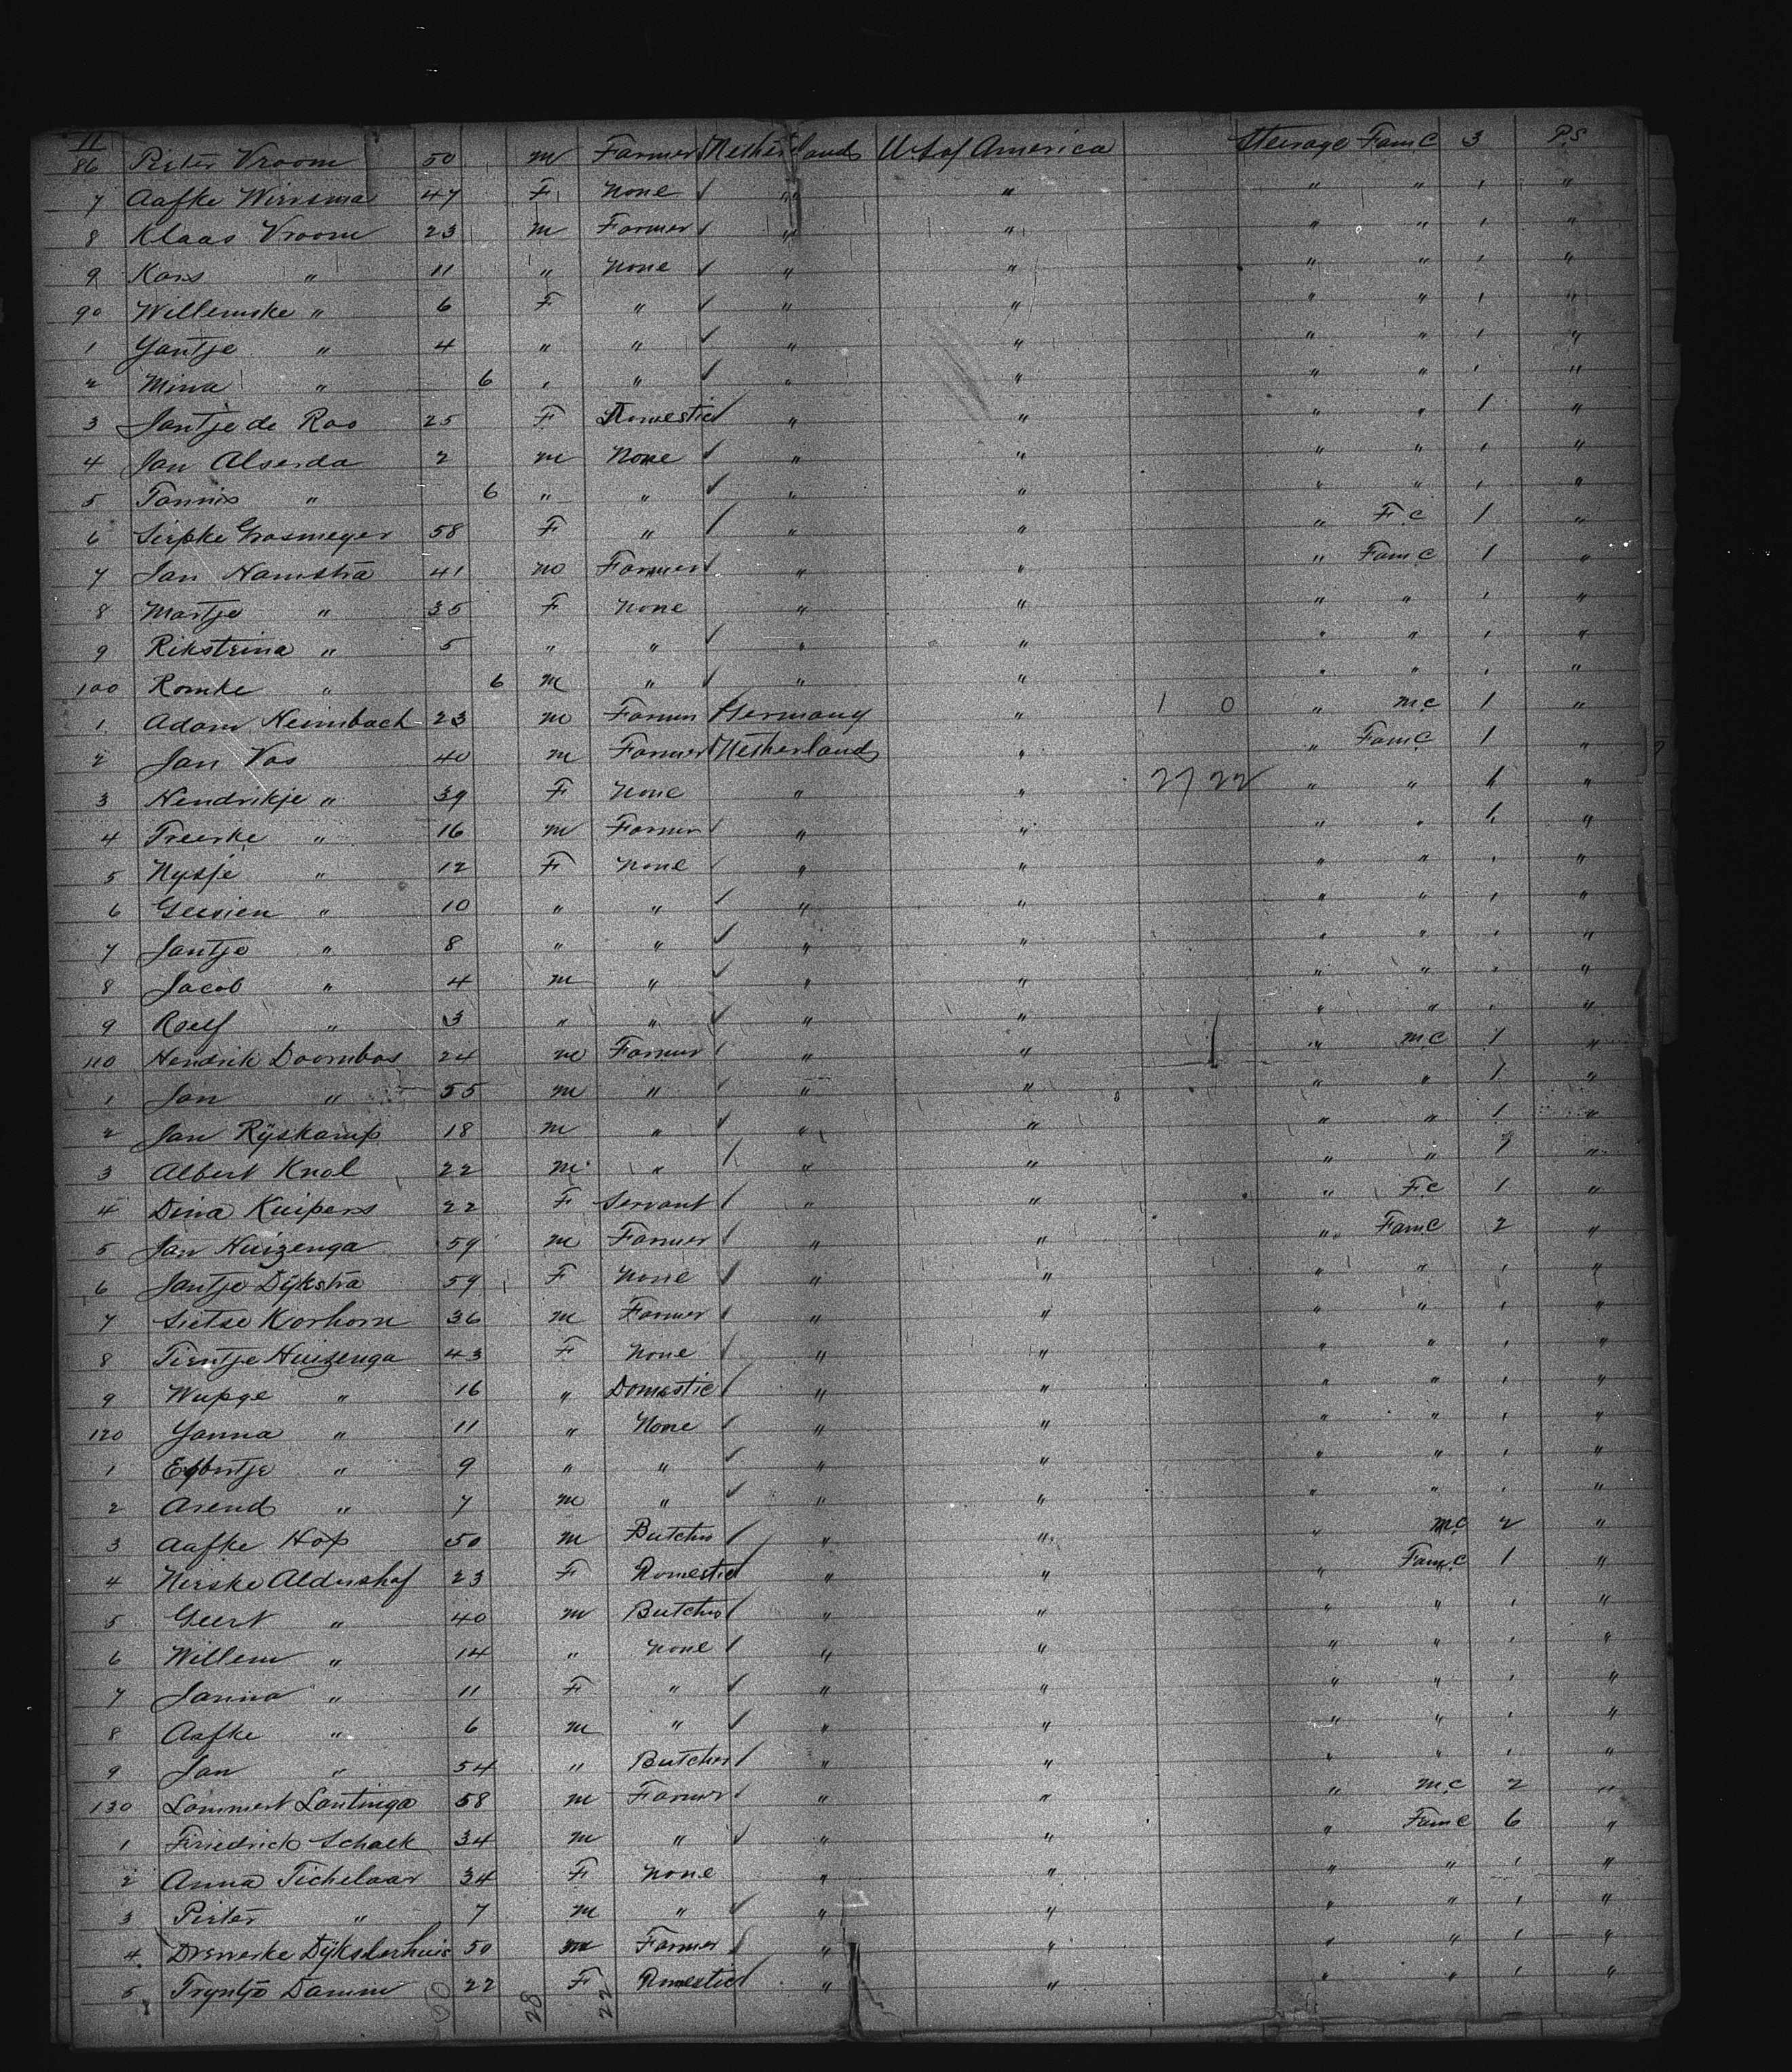 11
86 Pieter Vroom 50 m Farmer Netherlands U.S. of America Steerage Fam C 3 P.S
7 Aafke Wiersma 47 F None " " " " " "
8 Klaas Vroom 23 m Farmer " " " " " "
9 Kars " 11 " None " " " " " "
90 Willemske " 6 F " " " " " " "
1 Yantje " 4 " " " " " " " "
2 Mina " 6 " " " " " " " "
3 Jantje de Roo 25 F Domestic " " " " 1 "
4 Jan Alserda 2 m None " " " " " "
5 Tonnis " 6 " " " " " " " "
6 Siepke Grasmeyer 58 F " " " " F.C 1 "
7 Jan Hamstra 41 m Farmer " " " Fam C 1 "
8 Martje " 35 F None " " " " " "
9 Riksteina " 5 " " " " " " " "
100 Romke " 6 m " " " " " " "
1 Adam Heimbach 23 m Farmer Germany " 1 0 " m.c 1 "
2 Jan Vos 40 m Farmer Netherlands " " Fam C 1 "
3 Hendrikje " 39 F None " " 27 22 " " 1 "
4 Freerke " 16 m Farmer " " " " 1 "
5 Hysje " 12 F None " " " " " "
6 Geesien " 10 " " " " " " " "
7 Jantje " 8 " " " " " " " "
8 Jacob " 4 m " " " " " " "
9 Roelf " 3 " " " " " " " "
110 Hendrik Doornbos 24 m Farmer " " " m.c 1 "
1 Jan " 55 m " " " " " 1 "
2 Jan Ryskamp 18 m " " " " " 1 "
3 Albert Knol 22 m " " " " " 1 "
4 Dina Kuipers 22 F Servant " " " F.c 1 "
5 Jan Huizenga 59 m Farmer " " " Fam C 2 "
6 Jantje Dijkstra 59 F None " " " " " "
7 Sietse Korhorn 36 m Farmer " " " " " "
8 Tientje Huizenga 43 F None " " " " " "
9 Wupge " 16 " Domestic " " " " " "
120 Yanna " 11 " None " " " " " "
1 Egbertje " 9 " " " " " " " "
2 Arend " 7 m " " " " " " "
3 Aafke Hop 50 m Butcher " " " m.c 2 "
4 Hieske Aldershof 23 F Domestic " " " Fam C 1 "
5 Geert " 40 m Butcher " " " " " "
6 Willem " 14 " None " " " " " "
7 Janna " 11 F " " " " " " "
8 Aafke " 6 m " " " " " " "
9 Jan " 54 " Butcher " " " " " "
130 Lammert Lantinga 58 m Farmer " " " m.c 2 "
1 Friedrick Schalk 34 m " " " " Fam C 6 "
2 Anna Tichelaar 34 F None " " " " " "
3 Pieter " 7 m " " " " " " "
4 Drewerke Dijksterhuis 50 m Farmer " " " " " "
5 Tryntje Damm 22 F Domestic " " " " " "
28 22